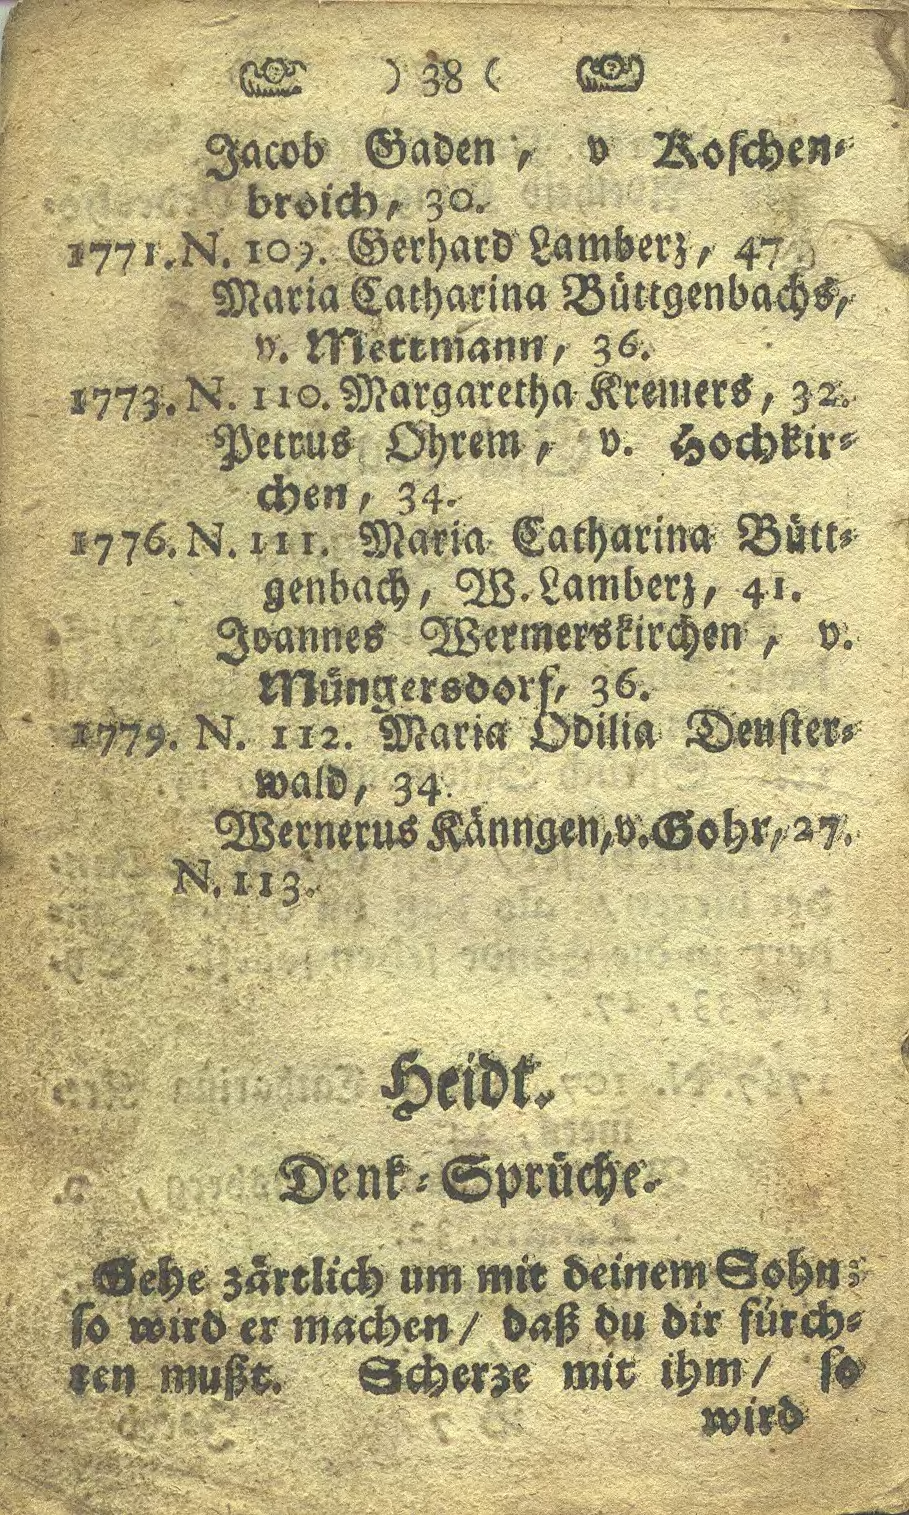 ) 38 (
Jacob Gaden, v Koschen-
broich, 30.
1771. N. 109. Gerhard Lamberz, 47.
Maria Catharina Büttgenbachs,
v. Mettmann, 36.
1773. N. 110. Margaretha Kremers, 32.
Petrus Ohrem, v. Hochkir-
chen, 34.
1776. N. 111. Maria Catharina Bütt-
genbach, W. Lamberz, 41.
Joannes Wermerskirchen, v.
Müngersdorf, 36.
1779. N. 112. Maria Odilia Deuster-
wald, 34.
Wernerus Känngen, v. Gohr, 27.
N. 113.
Heidt.
Denk-Sprüche.
Gehe zärtlich um mit deinem Sohn;
so wird er machen / daß du dir fürch-
ten mußt. Scherze mit ihm / so
wird